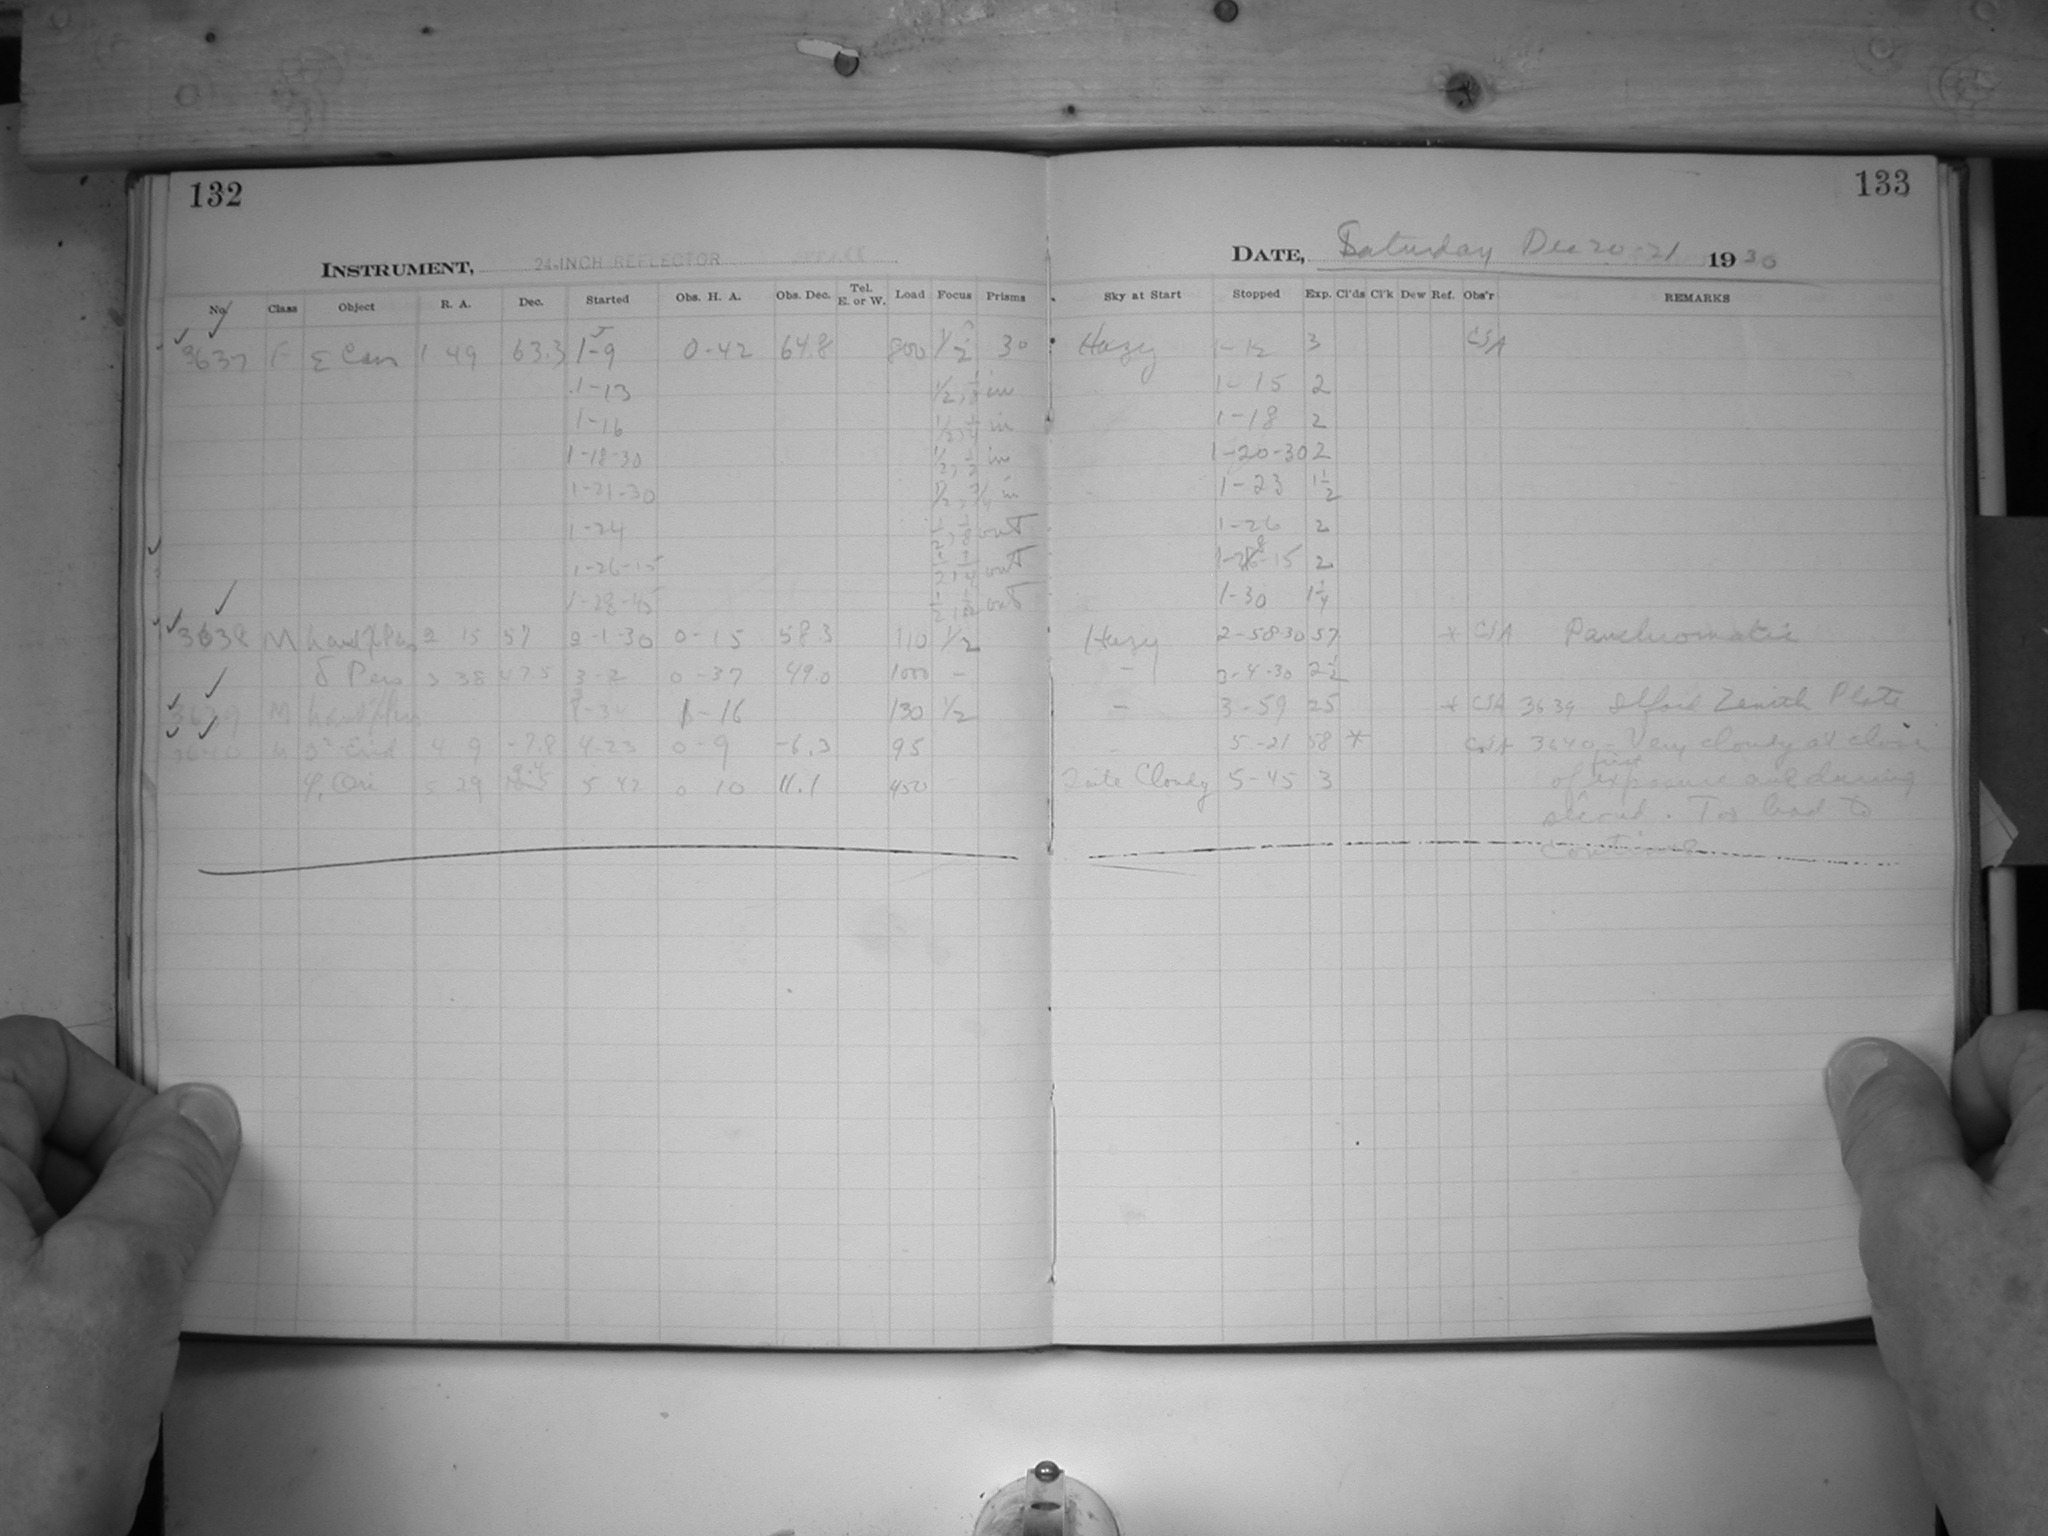 132
133
INSTRUMENT, 24-INCH REFLECTOR
DATE, Saturday Dec 20-21 1930
No. Class Object R. A. Dec. Started Obs. H. A. Obs. Dec. Tel. E. or W. Load Focus Prisms
Sky at Start Stopped Exp. Cl'ds Cl'k Dew Ref. Obs'r REMARKS
3637 F ε Cas 1 49 63.3 1-9 0-42 64.8 800 1/2 30 Hazy 1-12 3 CSA
1-13 in 1-15 2
1-16 in 1-18 2
1-18-30 in 1-20-30 2
1-21-30 in 1-23 1½
1-24 out 1-26 2
1-26-15 out 1-28-15 2
1-28-45 out 1-30 1¼
3638 M h and χ Pers 2 15 57 2-1-30 0-15 58.3 110 1/2 Hazy 2-58-30 57 * CSA Panchromatic
δ Pers 3 38 47.5 3-2 0-37 49.0 1000 - - 3-4-30 2½
3639 M h and χ Pers 1-16 130 1/2 - 3-59 25 * CSA 3639 Ilford Zenith Plate
3640 M o² Erid 4 9 -7.8 4-23 0-9 -6.3 95 - 5-21 58 * CSA 3640 - Very cloudy at close
φ, Ori 5 29 9.4 5 42 0 10 11.1 450 Quite Cloudy 5-45 3 of first exposure and during
second. Too bad to
continue